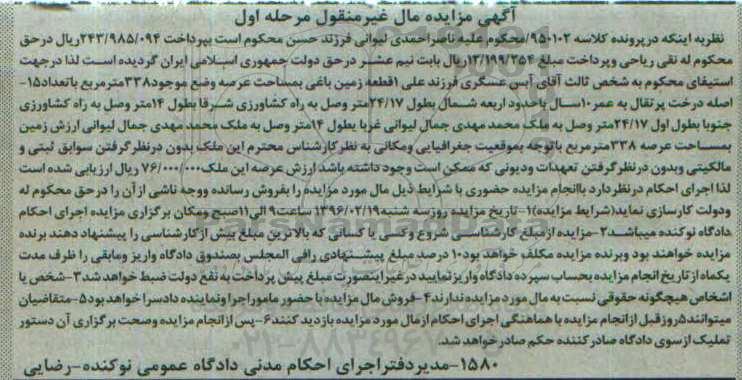 آگهی مزایده مال غیرمنقول مرحله اول
نظربه اینکه درپرونده کلاسه ۹۵۰۱۰۲/محکوم علیه ناصراحمدی لیوانی فرزند حسن محکوم است بپرداخت ۲۴۳/۹۸۵/۰۹۴ریال درحق
محکوم له نقی ریاحی وپرداخت مبلغ ۱۲/۱۹۹/۲۵۴ریال بابت نیم عشر درحق دولت جمهوری اسلامی ایران گردیده است لذا درجهت
استیفای محکوم به شخص ثالث آقای آیس عسگری فرزند علی ۱قطعه زمین باغی بمساحت عرصه وضع موجود۳۳۸مترمربع باتعداد۱۵-
اصله درخت پرتقال به عمر ۱۰سال باحدود اربعه شمال بطول ۲۴/۱۷متر وصل به راه کشاورزی شرقا بطول ۱۴متر وصل به راه کشاورزی
جنوبا بطول اول ۲۴/۱۷متر وصل به ملک محمد مهدی جمال لیوانی غربا بطول ۱۴متر وصل به ملک محمد مهدی جمال لیوانی ارزش زمین
بمساحت عرصه ۳۳۸مترمربع باتوجه بموقعیت جغرافیایی ومکانی به نظرکارشناس محترم این ملک بدون درنظرگرفتن سوابق ثبتی و
مالکیتی وبدون درنظرگرفتن تعهدات ودیونی که ممکن است وجود داشته باشد ارزش عرصه این ملک ۷۶/۰۰۰/۰۰۰ ریال ارزیابی شده است
لذا اجرای احکام درنظردارد باانجام مزایده حضوری با شرایط ذیل مال مورد مزایده را بفروش رسانده ووجه ناشی از آن را درحق محکوم له
ودولت کارسازی نماید(شرایط مزایده)۱-تاریخ مزایده روزسه شنبه۱۳۹۶/۰۲/۱۹ ساعت۹ الی۱۱صبح ومکان برگزاری مزایده اجرای احکام
دادگاه نوکنده میباشد۲-مزایده ازمبلغ کارشناسی شروع وکسی یا کسانی که بالاترین مبلغ بیش ازکارشناسی را پیشنهاد دهند برنده
مزایده خواهند بود وبرنده مزایده مکلف خواهد بود۱۰درصد مبلغ پیشنهادی رافی المجلس بصندوق دادگاه واریز ومابقی را ظرف مدت
یکماه از تاریخ انجام مزایده بحساب سپرده دادگاه واریزنمایید درغیراینصورت مبلغ پیش پرداخت به نفع دولت ضبط خواهد شد۳-شخص یا
اشخاص هیچگونه حقوقی نسبت به مال مورد مزایده ندارند۴-فروش مال مزایده با حضور مامور اجرا ونماینده دادسرا خواهد بود۵-متقاضیان
میتوانند۵روزقبل ازانجام مزایده با هماهنگی اجرای احکام ازمال مورد مزایده بازدید کنند۶-پس ازانجام مزایده وصحت برگزاری آن دستور
تملیک ازسوی دادگاه صادرکننده حکم صادرخواهد شد.
۱۵۸۰-مدیردفتراجرای احکام مدنی دادگاه عمومی نوکنده-رضایی